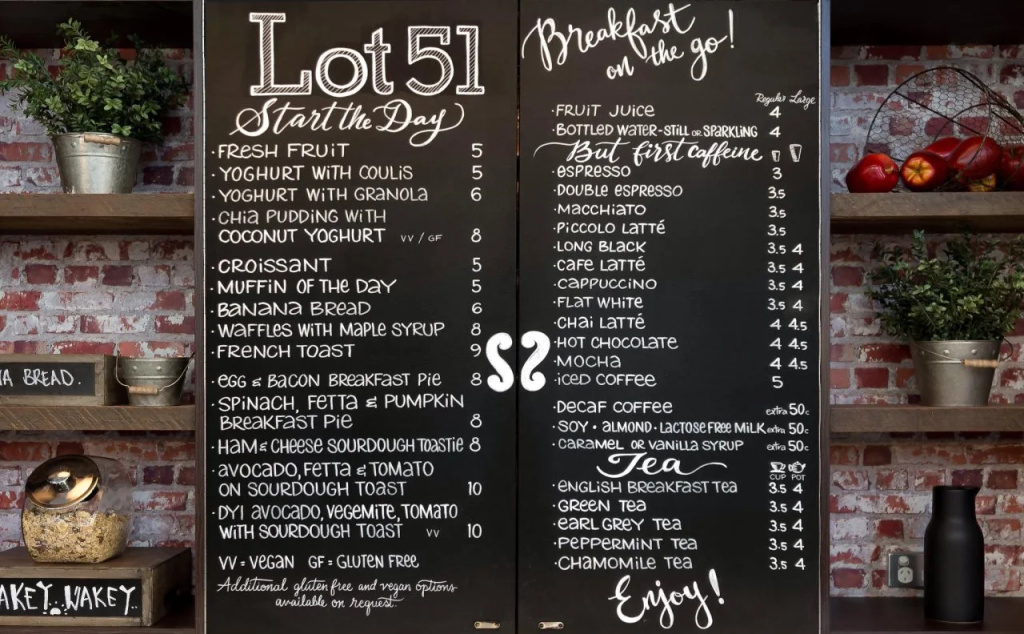 Lot 51
Start the Day
· FRESH FRUIT 5
· YOGHURT WITH COULIS 5
· YOGHURT WITH GRANOLA 6
· CHIA PUDDING WITH
COCONUT YOGHURT VV / GF 8
· CROISSANT 5
· MUFFIN OF THE DAY 5
· BANANA BREAD 6
· WAFFLES WITH MAPLE SYRUP 8
· FRENCH TOAST 9
· EGG & BACON BREAKFAST PIE 8
· SPINACH, FETTA & PUMPKIN
BREAKFAST PIE 8
· HAM & CHEESE SOURDOUGH TOASTIE 8
· AVOCADO, FETTA & TOMATO
ON SOURDOUGH TOAST 10
· DYI AVOCADO, VEGEMITE, TOMATO
WITH SOURDOUGH TOAST VV 10
VV = VEGAN GF = GLUTEN FREE
Additional gluten free and vegan options
available on request.
Breakfast
on the go!
Regular Large
· FRUIT JUICE 4
· BOTTLED WATER - STILL OR SPARKLING 4
But first caffeine
· ESPRESSO 3
· DOUBLE ESPRESSO 3.5
· MACCHIATO 3.5
· PICCOLO LATTÉ 3.5
· LONG BLACK 3.5 4
· CAFE LATTÉ 3.5 4
· CAPPUCCINO 3.5 4
· FLAT WHITE 3.5 4
· CHAI LATTÉ 4 4.5
· HOT CHOCOLATE 4 4.5
· MOCHA 4 4.5
· ICED COFFEE 5
· DECAF COFFEE extra 50c
· SOY · ALMOND · LACTOSE FREE MILK extra 50c
· CARAMEL OR VANILLA SYRUP extra 50c
Tea
CUP POT
· ENGLISH BREAKFAST TEA 3.5 4
· GREEN TEA 3.5 4
· EARL GREY TEA 3.5 4
· PEPPERMINT TEA 3.5 4
· CHAMOMILE TEA 3.5 4
Enjoy!
A BREAD.
AKEY, WAKEY.